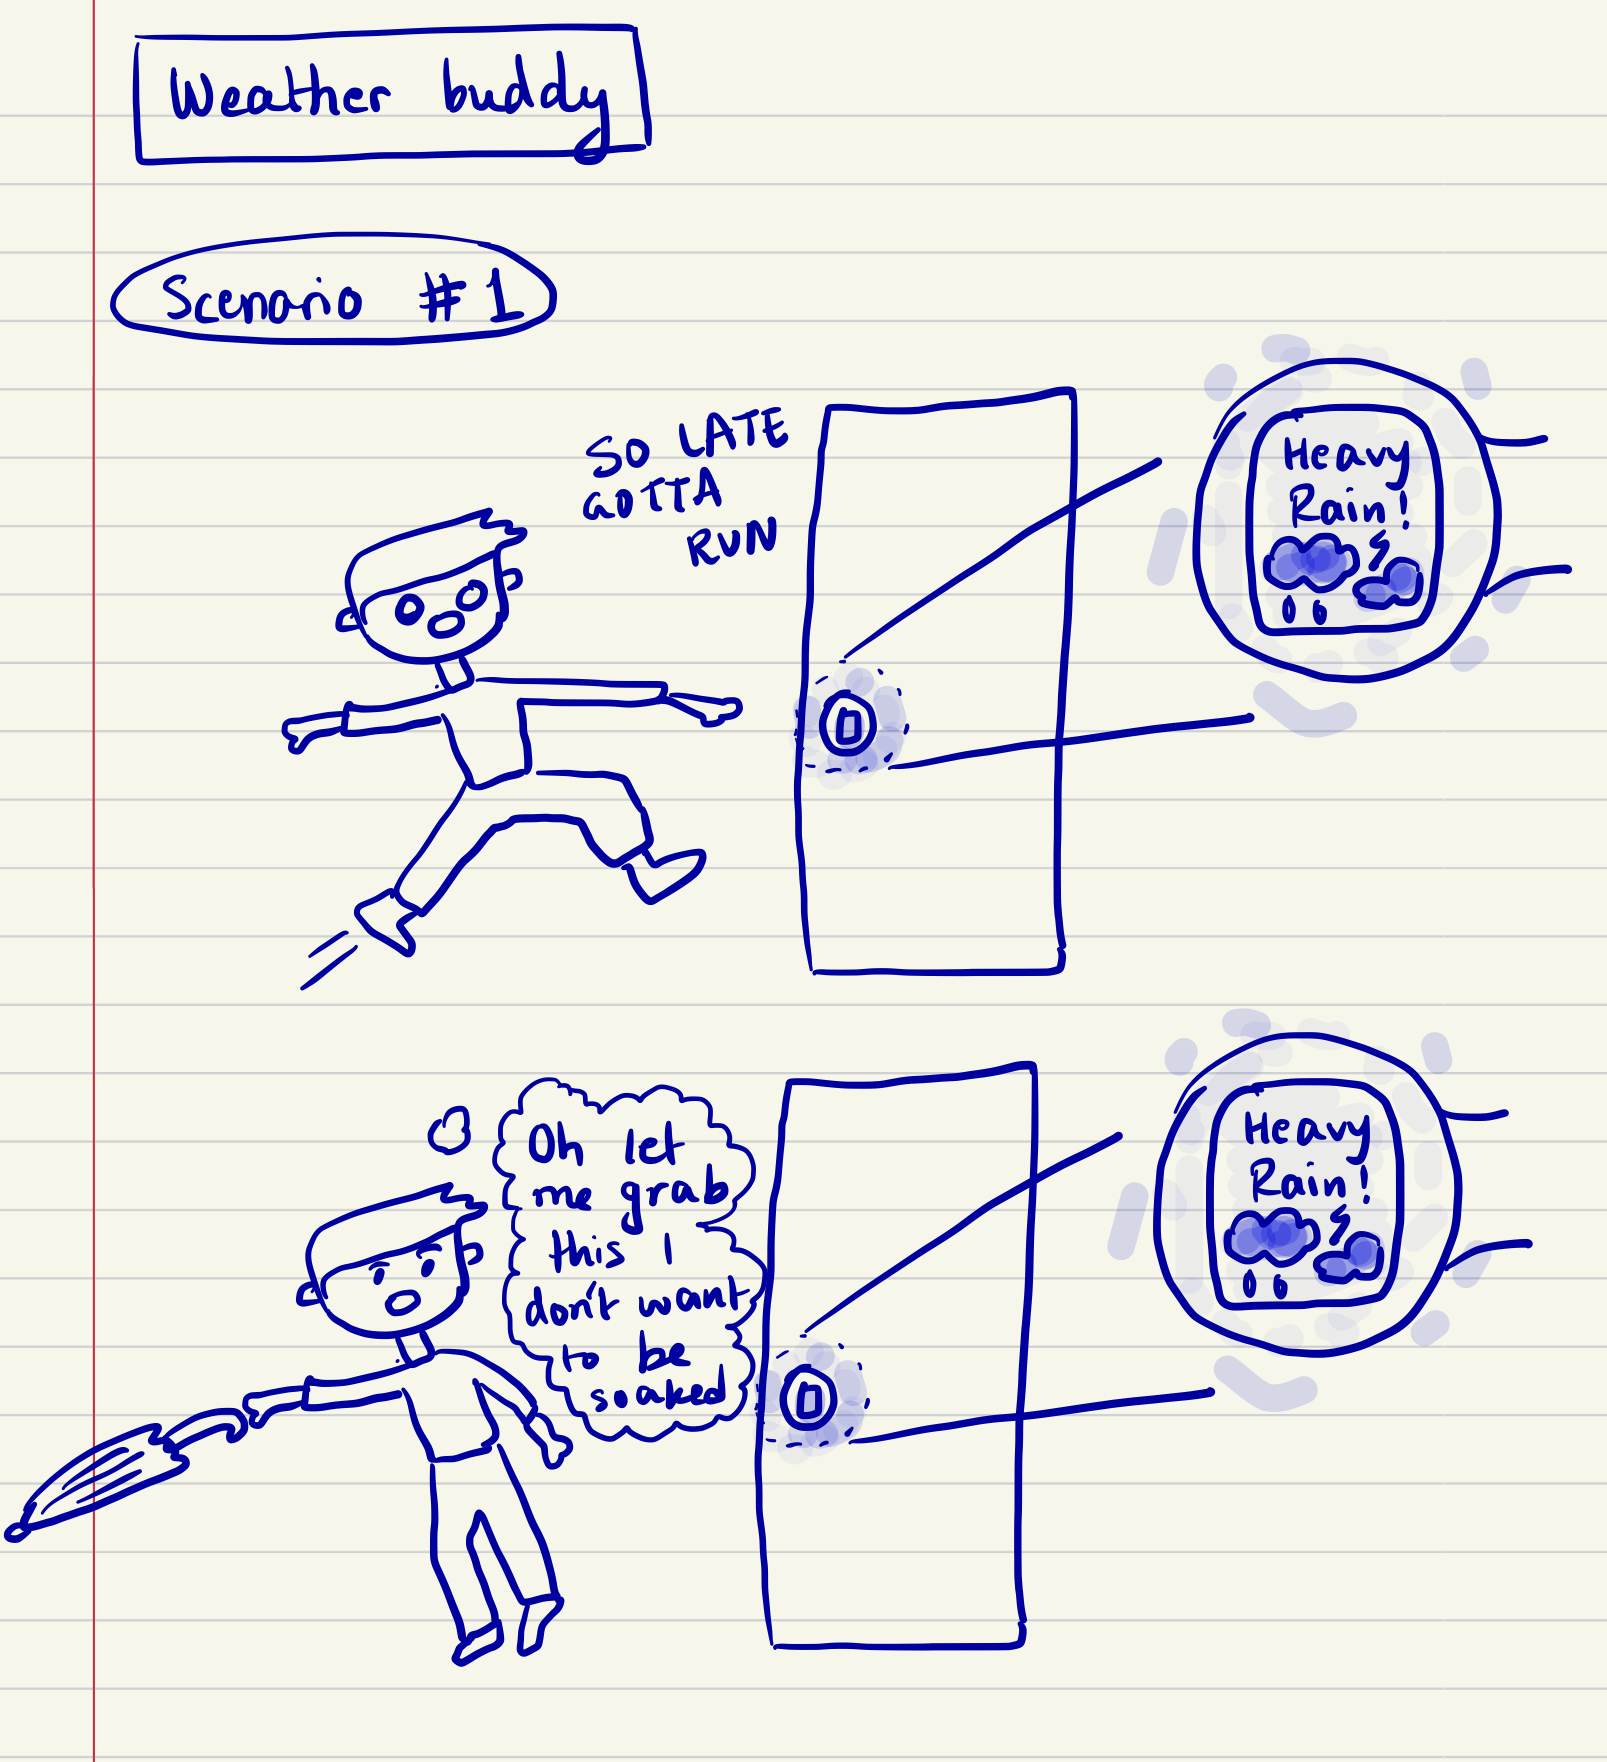 Weather buddy
Scenario #1
SO LATE
GOTTA
RUN
Heavy
Rain!
Oh let
me grab
this I
don't want
to be
soaked
Heavy
Rain!